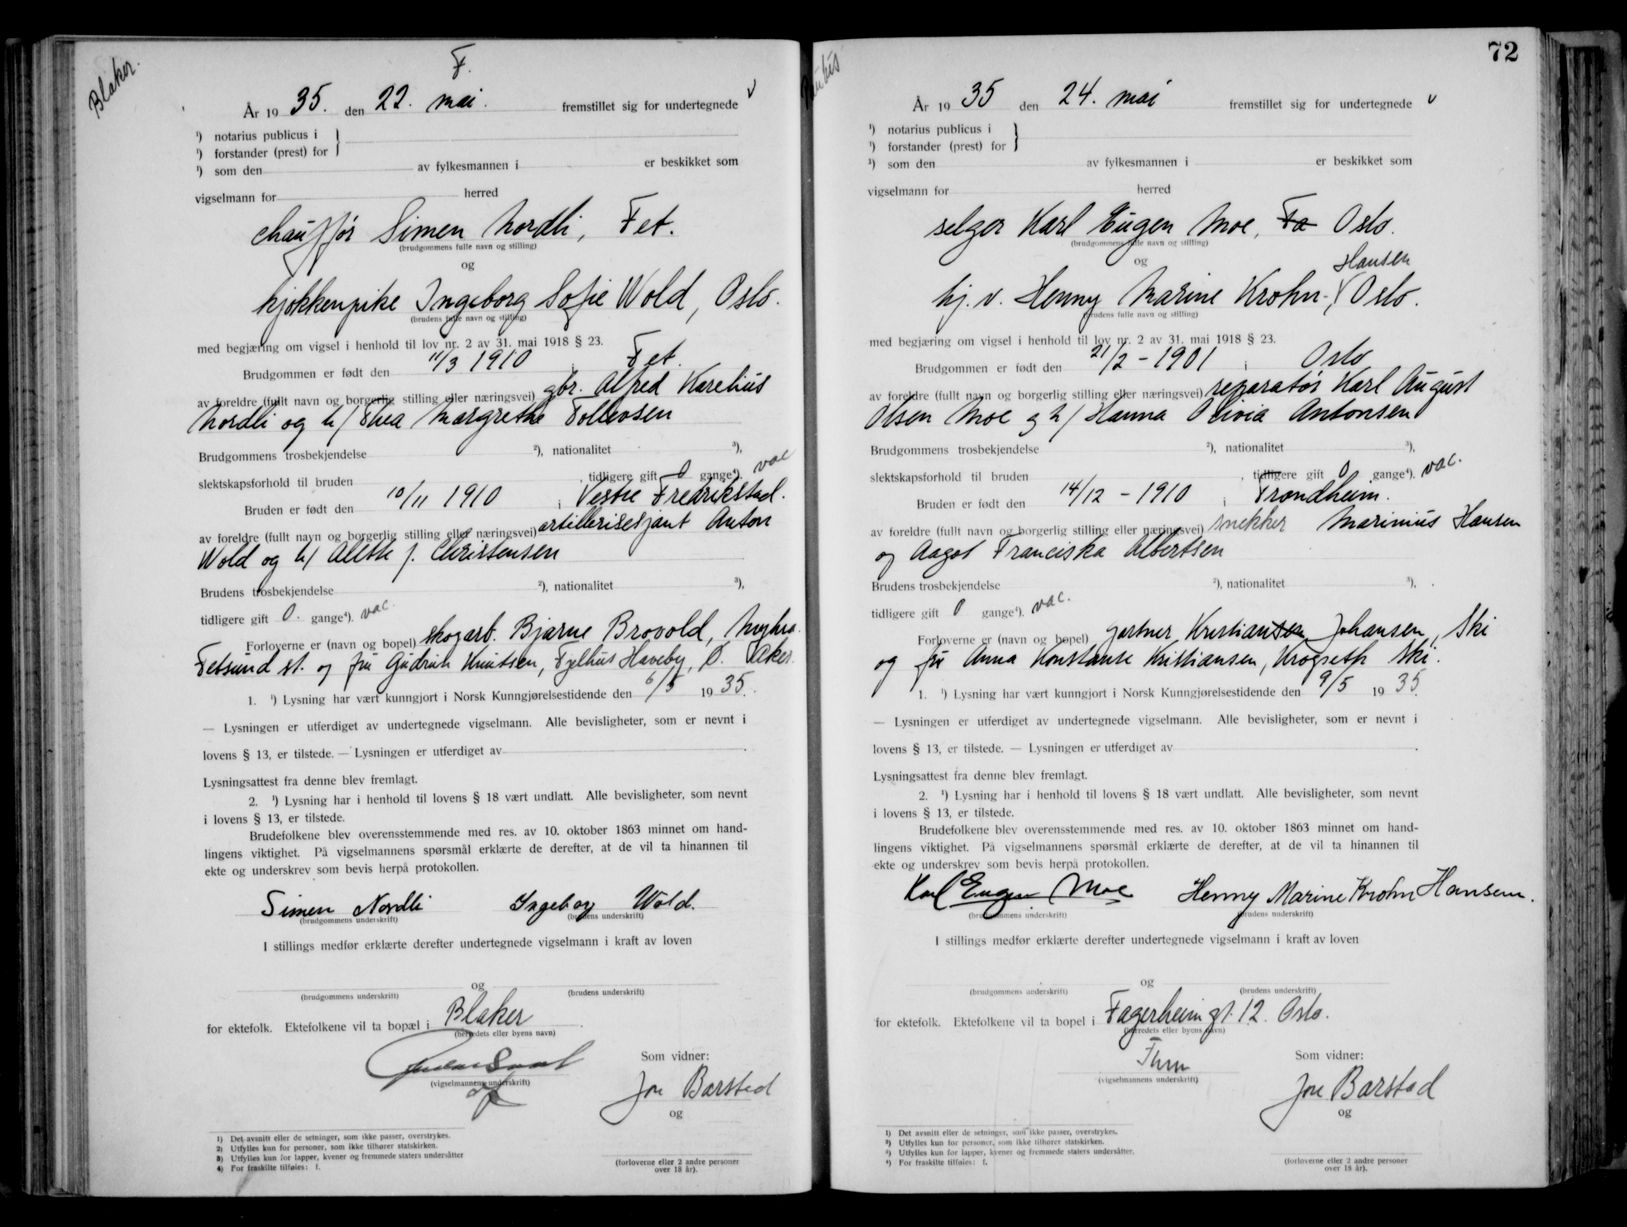 Blaker.
F.
År 1935. den 22. mai. fremstillet sig for undertegnede v
¹) notarius publicus i }
¹) forstander (prest) for
¹) som den av fylkesmannen i er beskikket som
vigselmann for herred
chauffør Simen Nordli, Fet.
(brudgommens fulle navn og stilling)
og
kjøkkenpike Ingeborg Sofie Wold, Oslo.
(brudens fulle navn og stilling)
med begjæring om vigsel i henhold til lov nr. 2 av 31. mai 1918 § 23.
Brudgommen er født den 11/3 1910 i Fet
av foreldre (fullt navn og borgerlig stilling eller næringsvei) gbr. Alfred Karelius
Nordli og h/ Thea Margrethe Tollevsen
Brudgommens trosbekjendelse ²), nationalitet ³),
slektskapsforhold til bruden , tidligere gift 0 gange⁴). vac
Bruden er født den 10/11 1910 i Vestre Fredrikstad.
av foreldre (fullt navn og borgerlig stilling eller næringsvei) artillerisesjant Anton
Wold og h/ Alette f. Christensen
Brudens trosbekjendelse ²), nationalitet ³),
tidligere gift 0. gange⁴). vac.
Forloverne er (navn og bopel) skogarb. Bjarne Brovold,
Fetsund st. og fru Gudrun Knutsen, Fjelhus Haveby, Ø. Aker.
1. ¹) Lysning har vært kunngjort i Norsk Kunngjørelsestidende den 6/5 1935.
— Lysningen er utferdiget av undertegnede vigselmann. Alle bevisligheter, som er nevnt i
lovens § 13, er tilstede. — Lysningen er utferdiget av
Lysningsattest fra denne blev fremlagt.
2. ¹) Lysning har i henhold til lovens § 18 vært undlatt. Alle bevisligheter, som nevnt
i lovens § 13, er tilstede.
Brudefolkene blev overensstemmende med res. av 10. oktober 1863 minnet om hand-
lingens viktighet. På vigselmannens spørsmål erklærte de derefter, at de vil ta hinannen til
ekte og underskrev som bevis herpå protokollen.
Simen Nordli Ingeborg Wold.
(brudgommens underskrift) (brudens underskrift)
I stillings medfør erklærte derefter undertegnede vigselmann i kraft av loven
og
(brudgommens underskrift) (brudens underskrift)
for ektefolk. Ektefolkene vil ta bopæl i Blaker
(herredets eller byens navn)
Som vidner:
(vigselmannens underskrift)
Jon Barstad
og
1) Det avsnitt eller de setninger, som ikke passer, overstrykes.
2) Utfylles kun for personer, som ikke tilhører statskirken.
3) Utfylles kun for lapper, kvener og fremmede staters undersåtter
4) For fraskilte tilføies: f.
(forloverne eller 2 andre personer
over 18 år).
72
År 1935 den 24. mai fremstillet sig for undertegnede v
¹) notarius publicus i }
¹) forstander (prest) for
¹) som den av fylkesmannen i er beskikket som
vigselmann for herred
selger Karl Eugen Moe, Fa Oslo.
(brudgommens fulle navn og stilling)
og
Hansen
hj. v. Henny Marine Krohn-, Oslo.
(brudens fulle navn og stilling)
med begjæring om vigsel i henhold til lov nr. 2 av 31. mai 1918 § 23.
Brudgommen er født den 21/2 - 1901 i Oslo
av foreldre (fullt navn og borgerlig stilling eller næringsvei) reparatør Karl August
Olsen Moe og h/ Hanna Olivia Antonsen
Brudgommens trosbekjendelse ²), nationalitet ³),
slektskapsforhold til bruden , tidligere gift 0 gange⁴). vac.
Bruden er født den 14/12 - 1910 i Trondheim.
av foreldre (fullt navn og borgerlig stilling eller næringsvei) snekker Marinius Hansen
og Aagot Franciska Albertsen
Brudens trosbekjendelse ²), nationalitet ³),
tidligere gift 0 gange⁴). vac.
Forloverne er (navn og bopel) gartner Kristiansen Johansen, Ski
og fru Anna Konstanse Kristiansen, Ski.
1. ¹) Lysning har vært kunngjort i Norsk Kunngjørelsestidende den 9/5 1935
— Lysningen er utferdiget av undertegnede vigselmann. Alle bevisligheter, som er nevnt i
lovens § 13, er tilstede. — Lysningen er utferdiget av
Lysningsattest fra denne blev fremlagt.
2. ¹) Lysning har i henhold til lovens § 18 vært undlatt. Alle bevisligheter, som nevnt
i lovens § 13, er tilstede.
Brudefolkene blev overensstemmende med res. av 10. oktober 1863 minnet om hand-
lingens viktighet. På vigselmannens spørsmål erklærte de derefter, at de vil ta hinannen til
ekte og underskrev som bevis herpå protokollen.
Karl Eugen Moe Henny Marine Krohn Hansen.
(brudgommens underskrift) (brudens underskrift)
I stillings medfør erklærte derefter undertegnede vigselmann i kraft av loven
og
(brudgommens underskrift) (brudens underskrift)
for ektefolk. Ektefolkene vil ta bopel i Fagerheimgt. 12. Oslo.
(herredets eller byens navn)
Som vidner:
(vigselmannens underskrift)
Jon Barstad
og
1) Det avsnitt eller de setninger, som ikke passer, overstrykes.
2) Utfylles kun for personer, som ikke tilhører statskirken.
3) Utfylles kun for lapper, kvener og fremmede staters undersåtter.
4) For fraskilte tilføies: f.
(forloverne eller 2 andre personer
over 18 år).